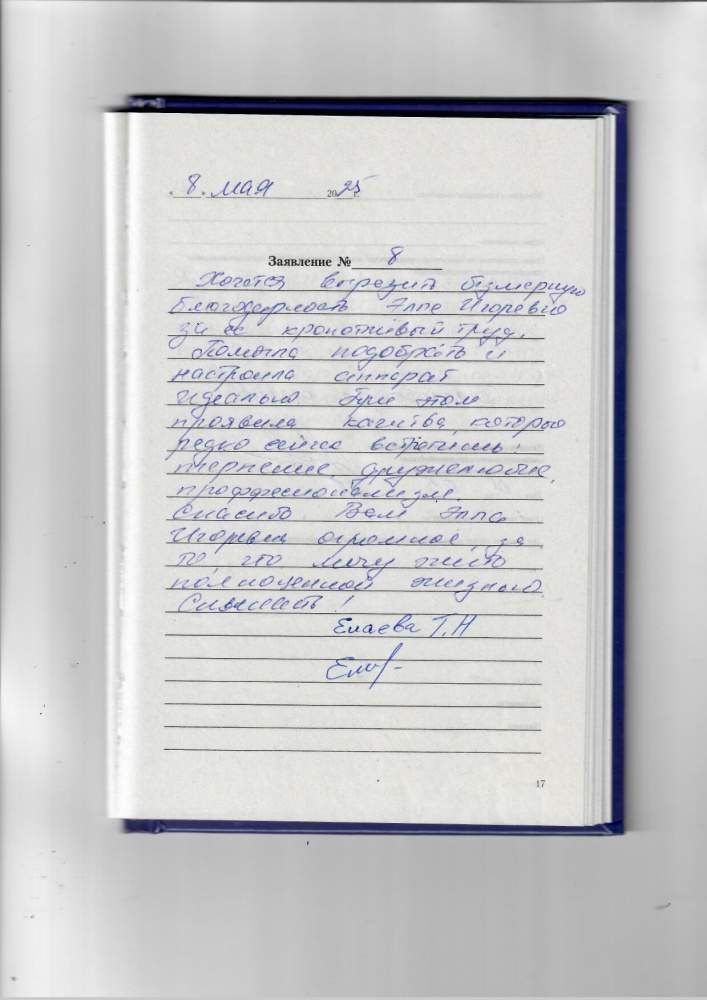 « 8 » мая 2025 г.
Заявление № 8
Хочется выразить безмерную
благодарность Элле Игоревне
за её кропотливый труд.
Помогла подобрать и
настроила аппарат
идеально При этом
проявила качества, которые
редко сейчас встретишь:
терпение, дружелюбие,
профессионализм.
Спасибо Вам Элла
Игоревна огромное, за
то, что могу жить
полноценной жизнью.
Слышать!
Елаева Т.Н
17